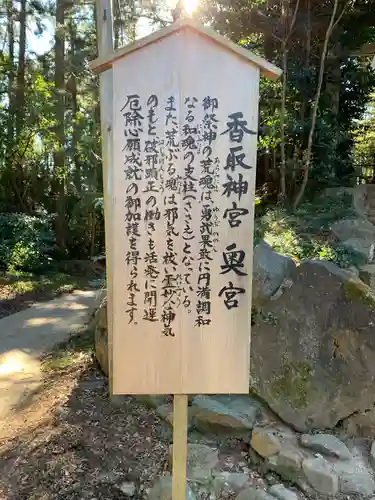 香取神宮 奥宮
御祭神の荒魂は、勇武果敢に円満調和
なる和魂の支柱(ささえ)となり
また荒ぶる魂は邪気を祓い霊妙な神気
のもと破邪顕正の働きも活発に開運
厄除心願成就の御加護を得られます。